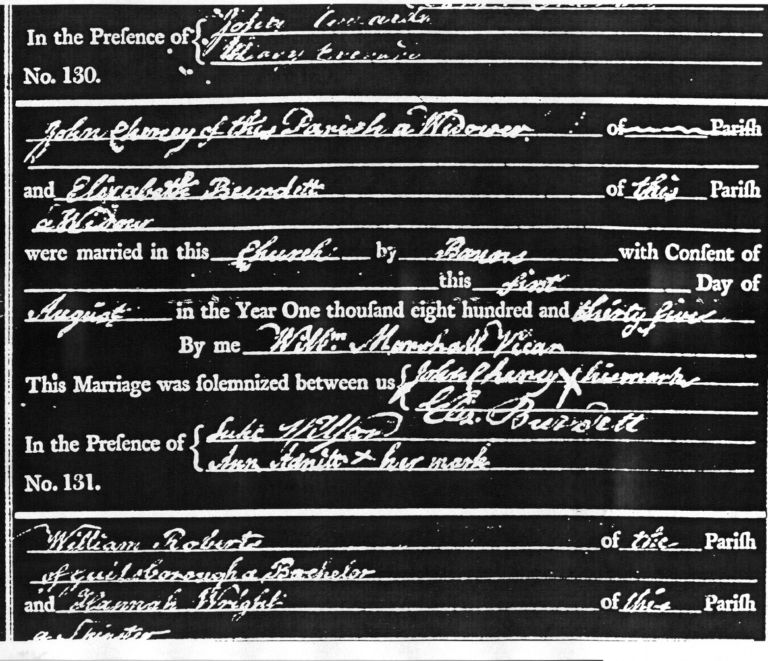 In the Preſence of { John
Mary
No. 130.
John Cheney of this Parish a Widower of Pariſh
and Elizabeth Burdett of this Pariſh
a Widow
were married in this Church by Banns with Conſent of
this first Day of
August in the Year One thouſand eight hundred and thirty five
By me Willm Marshall Vicar
This Marriage was ſolemnized between us { John Cheney X his mark
Elis. Burdett
In the Preſence of { Luke
Ann Adnitt X her mark
No. 131.
William Roberts of the Pariſh
of Guilsborough a Bachelor
and Hannah Wright of this Pariſh
a Spinster